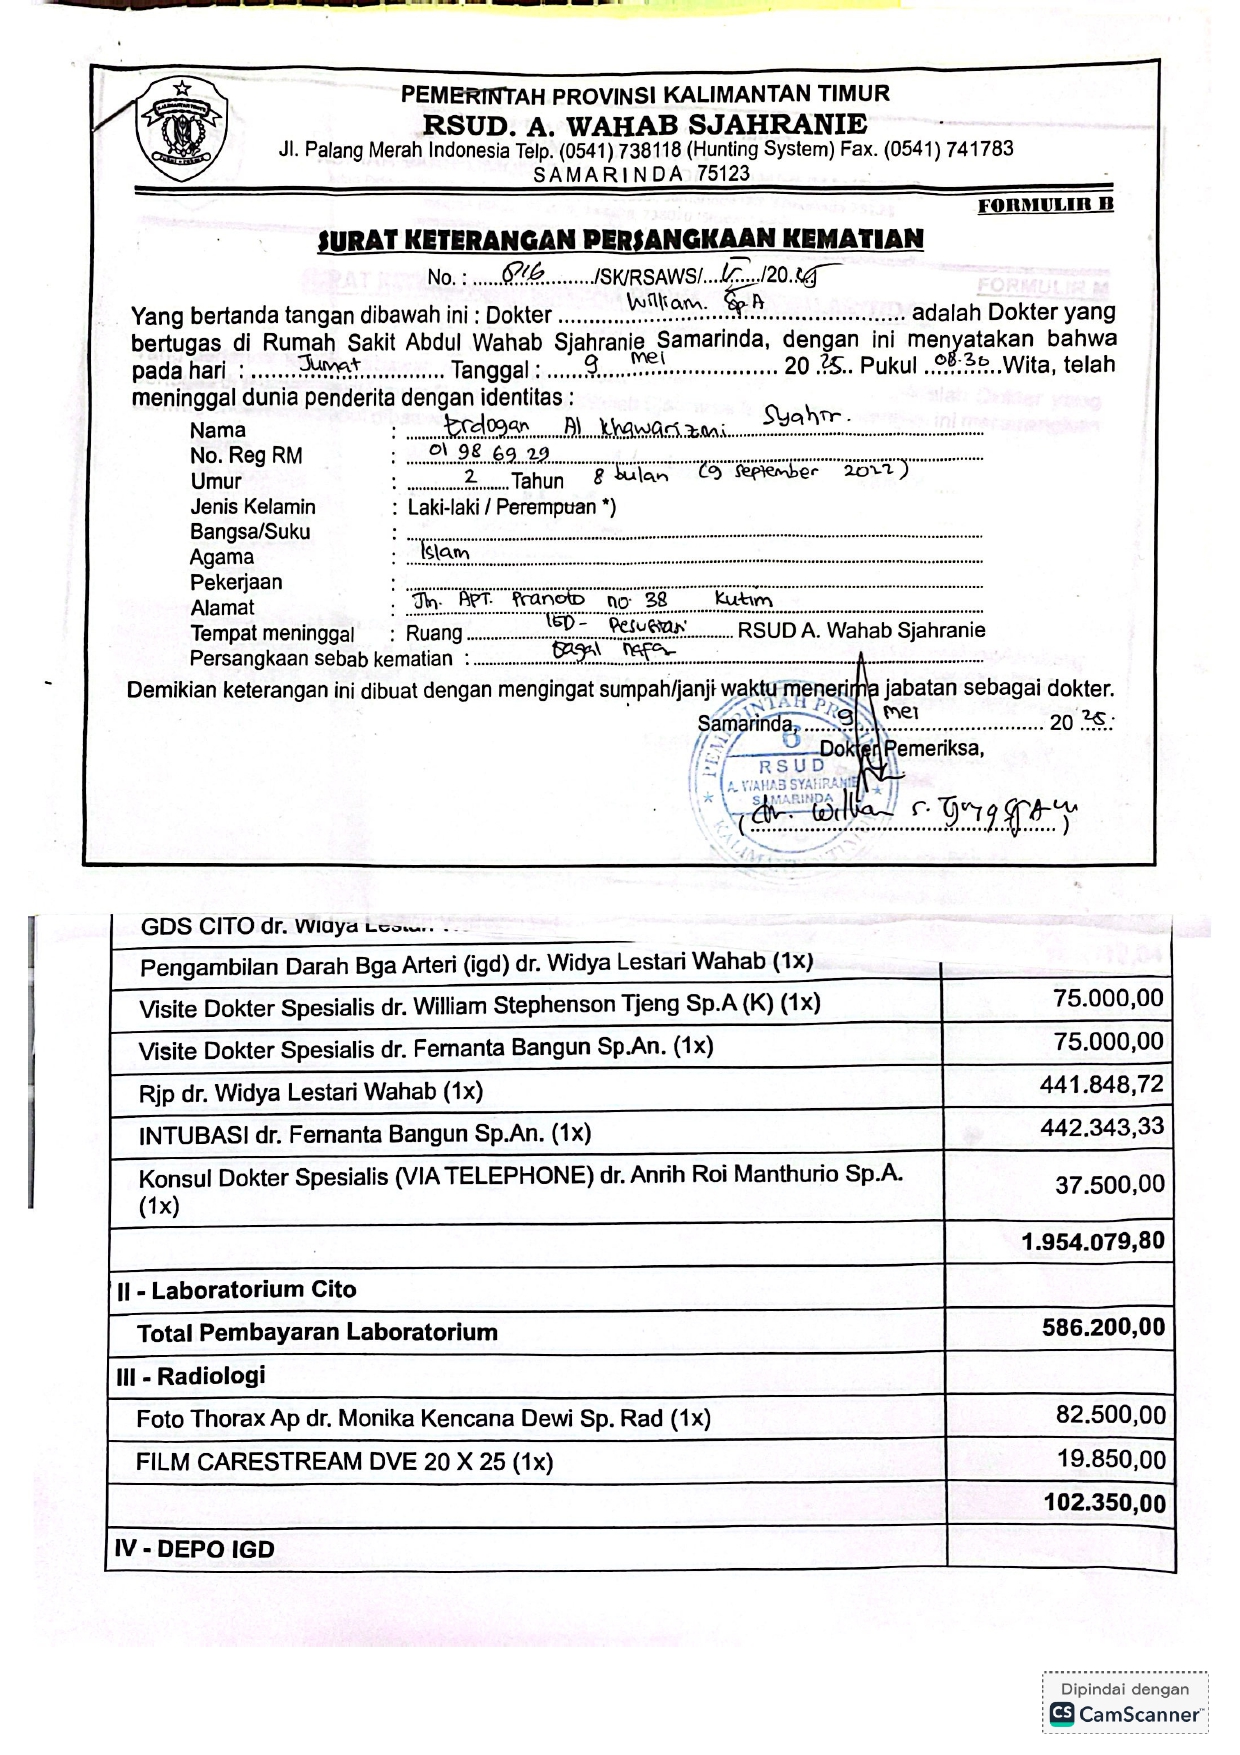 PEMERINTAH PROVINSI KALIMANTAN TIMUR
RSUD. A. WAHAB SJAHRANIE
Jl. Palang Merah Indonesia Telp. (0541) 738118 (Hunting System) Fax. (0541) 741783
SAMARINDA 75123
FORMULIR B
SURAT KETERANGAN PERSANGKAAN KEMATIAN
No. : 816 /SK/RSAWS/ V /2025
Yang bertanda tangan dibawah ini : Dokter William. Sp.A adalah Dokter yang
bertugas di Rumah Sakit Abdul Wahab Sjahranie Samarinda, dengan ini menyatakan bahwa
pada hari : Jumat Tanggal : 9 mei 20 25 Pukul 08.30 Wita, telah
meninggal dunia penderita dengan identitas :
Nama : Erdogan Al Khawarizmi Syahr.
No. Reg RM : 01 98 69 29
Umur : 2 Tahun 8 bulan (9 September 2022)
Jenis Kelamin : Laki-laki / Perempuan *)
Bangsa/Suku :
Agama : Islam
Pekerjaan :
Alamat : Jln. APT. Pranoto no 38 Kutim
Tempat meninggal : Ruang IGD - RSUD A. Wahab Sjahranie
Persangkaan sebab kematian : gagal nafas
Demikian keterangan ini dibuat dengan mengingat sumpah/janji waktu menerima jabatan sebagai dokter.
Samarinda, 9 mei 20 25
Dokter Pemeriksa,
PEMERINTAH PROVINSI
6
RSUD
A. WAHAB SYAHRANIE
SAMARINDA
KALIMANTAN TIMUR
(dr. William S.
GDS CITO dr. Widya Lestari
Pengambilan Darah Bga Arteri (igd) dr. Widya Lestari Wahab (1x)
Visite Dokter Spesialis dr. William Stephenson Tjeng Sp.A (K) (1x) 75.000,00
Visite Dokter Spesialis dr. Fernanta Bangun Sp.An. (1x) 75.000,00
Rjp dr. Widya Lestari Wahab (1x) 441.848,72
INTUBASI dr. Fernanta Bangun Sp.An. (1x) 442.343,33
Konsul Dokter Spesialis (VIA TELEPHONE) dr. Anrih Roi Manthurio Sp.A. 37.500,00
(1x)
1.954.079,80
II - Laboratorium Cito
Total Pembayaran Laboratorium 586.200,00
III - Radiologi
Foto Thorax Ap dr. Monika Kencana Dewi Sp. Rad (1x) 82.500,00
FILM CARESTREAM DVE 20 X 25 (1x) 19.850,00
102.350,00
IV - DEPO IGD
Dipindai dengan
CS CamScanner